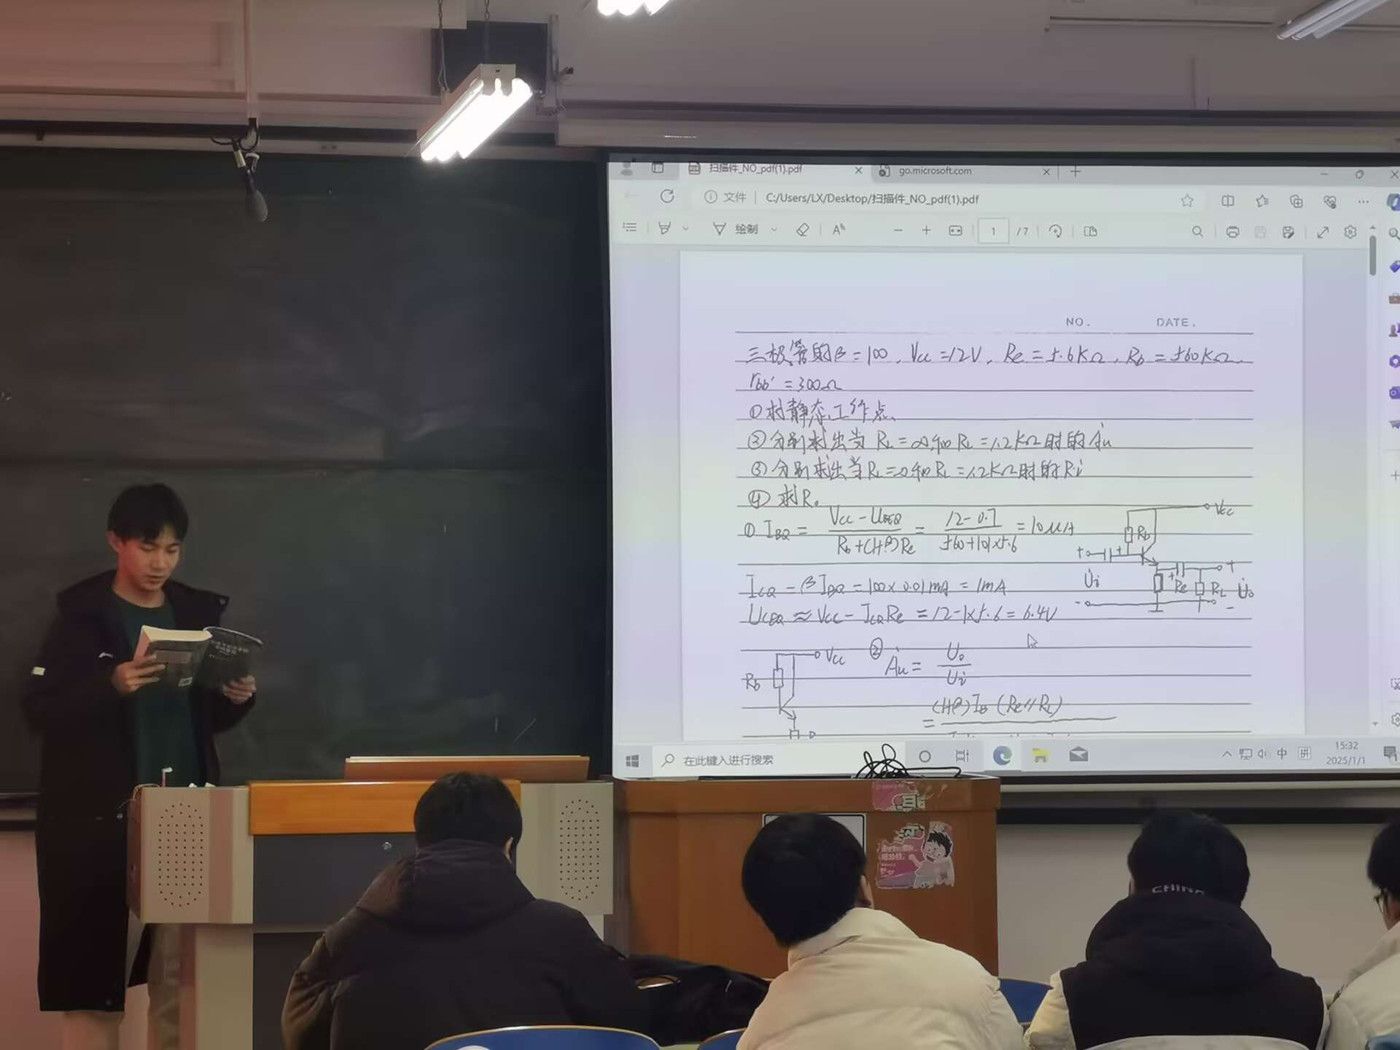 扫描件_NO_pdf(1).pdf
go.microsoft.com
文件 C:/Users/LX/Desktop/扫描件_NO_pdf(1).pdf
绘制 1 /7
NO. DATE.
三极管的β=100, Vcc=12V, Re=5.6KΩ, Rb=560KΩ,
rbb'=300Ω
①求静态工作点.
②分别求出当RL=∞和RL=1.2KΩ时的Au
③分别求出当RL=∞和RL=1.2KΩ时的Ri
④求Ro
① IBQ = Vcc-UBEQ / Rb+(1+β)Re = 12-0.7 / 560+101×5.6 = 10μA
ICQ = βIBQ = 100×0.01mA = 1mA
UCEQ ≈ Vcc-ICQRe = 12-1×5.6 = 6.4V
Vcc
Rb
Ui
Re
RL
Uo
Vcc
Rb
② Au = Uo / Ui
= (1+β)IB (Re//RL)
在此键入进行搜索
中
拼
15:32
2025/1/1
CHINA